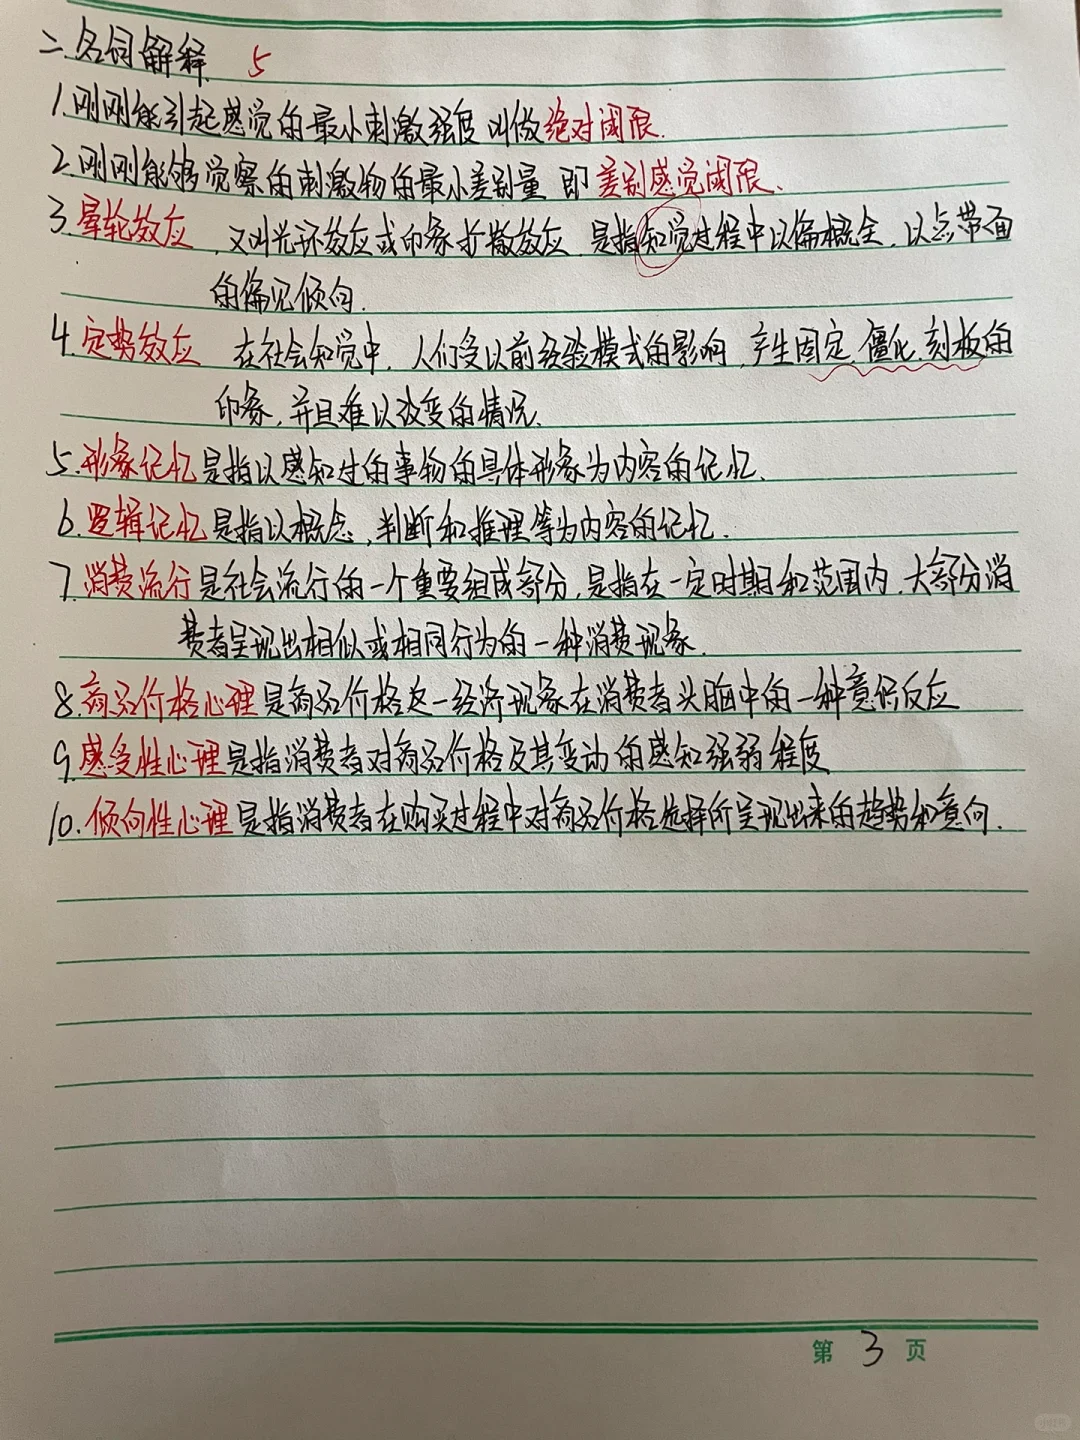 二.名词解释. 5
1.刚刚能引起感觉的最小刺激强度叫做绝对阈限.
2.刚刚能够觉察的刺激物的最小差别量 即 差别感觉阈限、
3.晕轮效应,又叫光环效应或印象扩散效应,是指知觉过程中以偏概全,以点带面
的偏见倾向.
4.定势效应 在社会知觉中,人们受以前经验模式的影响,产生固定、僵化、刻板的
印象,并且难以改变的情况.
5.形象记忆是指以感知过的事物的具体形象为内容的记忆.
6.逻辑记忆是指以概念,判断和推理等为内容的记忆.
7.消费流行是社会流行的一个重要组成部分,是指在一定时期和范围内,大部分消
费者呈现出相似或相同行为的一种消费现象.
8.商品价格心理是商品价格这一经济现象在消费者头脑中的一种意识反应
9.感受性心理是指消费者对商品价格及其变动的感知强弱程度
10.倾向性心理是指消费者在购买过程中对商品价格选择所呈现出来的趋势和意向.
第 3 页
小红书